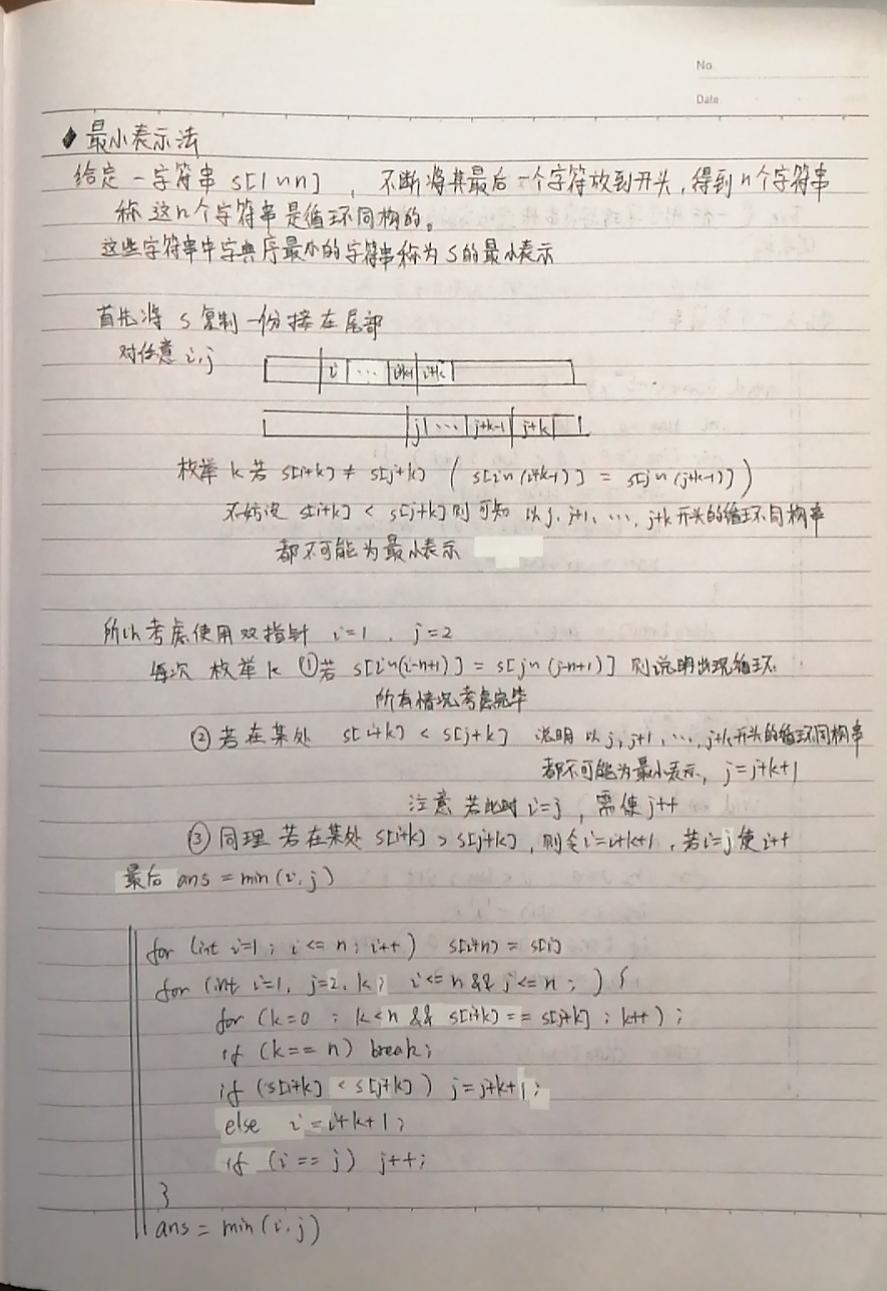 No
Date
◆ 最小表示法
给定一字符串 s[1~n] , 不断将其最后一个字符放到开头,得到n个字符串
称这n个字符串是循环同构的。
这些字符串中字典序最小的字符串称为S的最小表示
首先将 s 复制一份接在尾部
对任意 i,j
i ... i+k-1 i+k
j ... j+k-1 j+k
枚举 k 若 s[i+k] ≠ s[j+k] ( s[i~(i+k-1)] = s[j~(j+k-1)] )
不妨设 s[i+k] < s[j+k] 则可知 以 j, j+1, ..., j+k 开头的循环同构串
都不可能为最小表示
所以考虑使用双指针 i=1 , j=2
每次 枚举 k ①若 s[i~(i-n+1)] = s[j~(j-n+1)] 则说明出现循环
所有情况考虑完毕
② 若在某处 s[i+k] < s[j+k] 说明 以 j, j+1, ..., j+k开头的循环同构串
都不可能为最小表示, j=j+k+1
注意 若此时 i=j , 需使 j++
③ 同理 若在某处 s[i+k] > s[j+k] , 则令 i=i+k+1 , 若i=j 使 i++
最后 ans = min(i,j)
for (int i=1; i<=n; i++) s[i+n] = s[i]
for (int i=1, j=2, k; i<=n && j<=n; ) {
for (k=0 ; k<n && s[i+k] == s[j+k] ; k++) ;
if (k==n) break;
if (s[i+k] < s[j+k]) j=j+k+1;
else i=i+k+1;
if (i==j) j++;
}
ans = min(i,j)